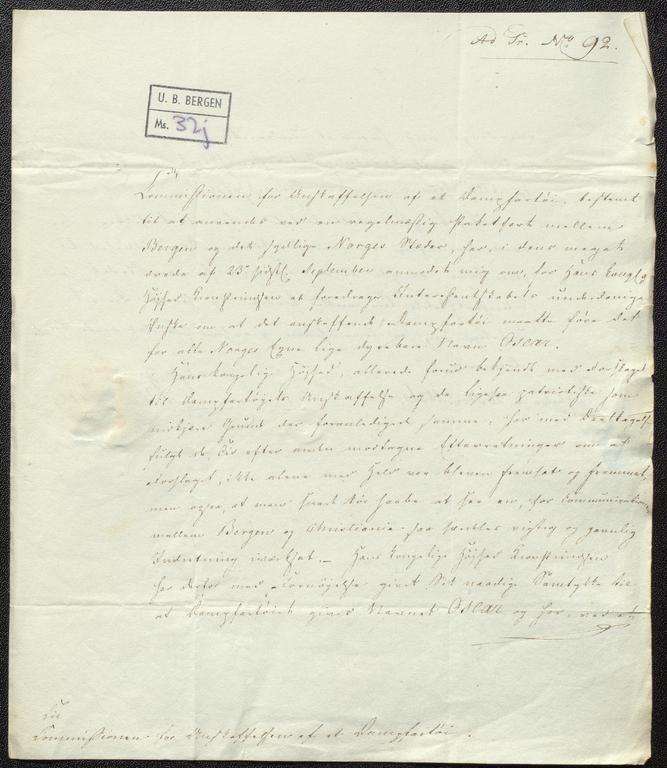 Ad Nr. No 92.
U. B. BERGEN
Ms. 32j
Commissionen for Anskaffelsen af et Dampfartøi, bestemt
til at anvendes ved en regelmæssig Paketfart mellem
Bergen og det sydlige Norges Steder, har, i dens meget
ærede af 23de sidstl. September anmodet mig om, for Hans Kongelige
Høihed Kronprindsen at foredrage Interessentskabets underdanige
Ønske om at det anskaffende Dampfartøi maatte føre det
for alle Norges Egne lige dyrebare Navn Oscar.
Hans Kongelige Høihed, allerede forud bekjendt med Forslaget
til Dampfartøiets Anskaffelse og de ligesaa patriotiske som
Grunde der foranledigede samme, har med Deeltagelse
fulgt de Tid efter anden modtagne Efterretninger om at
Forslaget, ikke alene med Held var bleven fremsat og fremmet,
men ogsaa, at man snart tør haabe at see en, for Communicationen
mellem Bergen og Christiania saa særdeles vigtig og gavnlig
Indretning iværksat. Hans Kongelige Høihed Kronprindsen
har derfor med Fornøielse givet Sit naadige Samtykke til
at Dampfartøiet gives Navnet Oscar og har, ved at
Til
Commissionen for Anskaffelsen af et Dampfartøi.